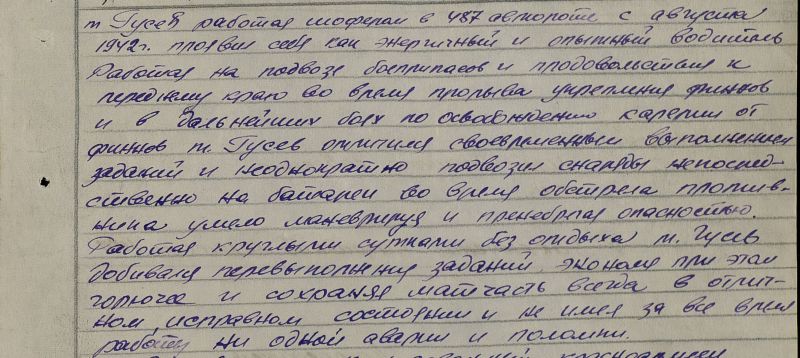 т Гусев работая шофером в 487 автороте с августа
1942 г. проявил себя как энергичный и опытный водитель
Работая на подвозе боеприпасов и продовольствия к
переднему краю во время прорыва укрепления финнов
и в дальнейших боях по освобождению карелии от
финнов т. Гусев отличился своевременным выполнением
заданий и неоднократно подвозил снаряды непосред-
ственно на батареи во время обстрела против-
ника умело маневрируя и пренебрегая опасностью.
Работая круглыми сутками без отдыха т. Гусев
добивался перевыполнения заданий, экономя при этом
горючее и сохраняя матчасть всегда в отлич-
ном, исправном состоянии и не имея за все время
работы ни одной аварии и поломки.
красноармеец